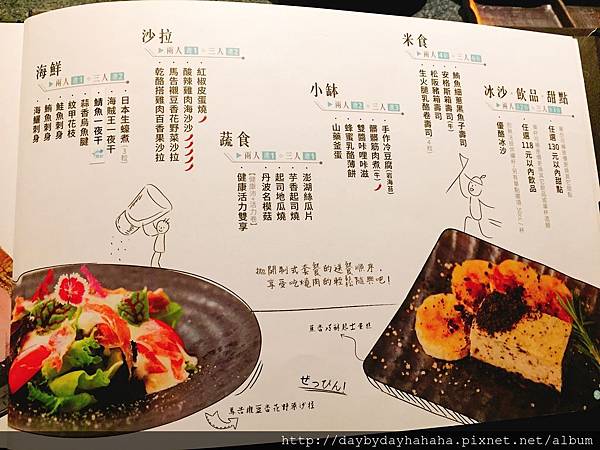 海鮮
兩人 選1 三人 選2
日本生蠔煮(3粒)
海賊王一夜干
鯖魚一夜干
蒜香烏魚腱
紋甲花枝
鮭魚刺身
鮪魚刺身
海鱺刺身
沙拉
兩人 選1 三人 選2
紅椒皮蛋燒
酸辣雞肉海沙沙
馬告櫬豆香花野菜沙拉
乾酪搭雞肉百香果沙拉
蔬食
兩人 選1 三人 選1
澎湖絲瓜片
芋香起司燒
起司地瓜燒
丹波名模菇
健康活力雙享
【健康沛+活力卷】
小缽
兩人 選2 三人 選3
手作冷豆腐(岩海苔)
髒髒筋肉煮(牛)
雙醬咔哩咔滋
蜂蜜乳酪薄餅
山藥釜蛋
米食
兩人 三人
鮪魚細蔥黑魚子壽司
安格斯箱壽司(牛)
松阪豬箱壽司
生火腿乳酪卷壽司
冰沙·飲品·甜點
兩人 三人
任選130元以內甜點
任選118元以內飲品
優酪冰沙
拋開制式套餐的送餐順序,
享受吃燒肉的輕鬆隨興吧!
ぜっぴん!
馬告櫬豆香花野菜沙拉
http://daybydayhahaha.pixnet.net/album